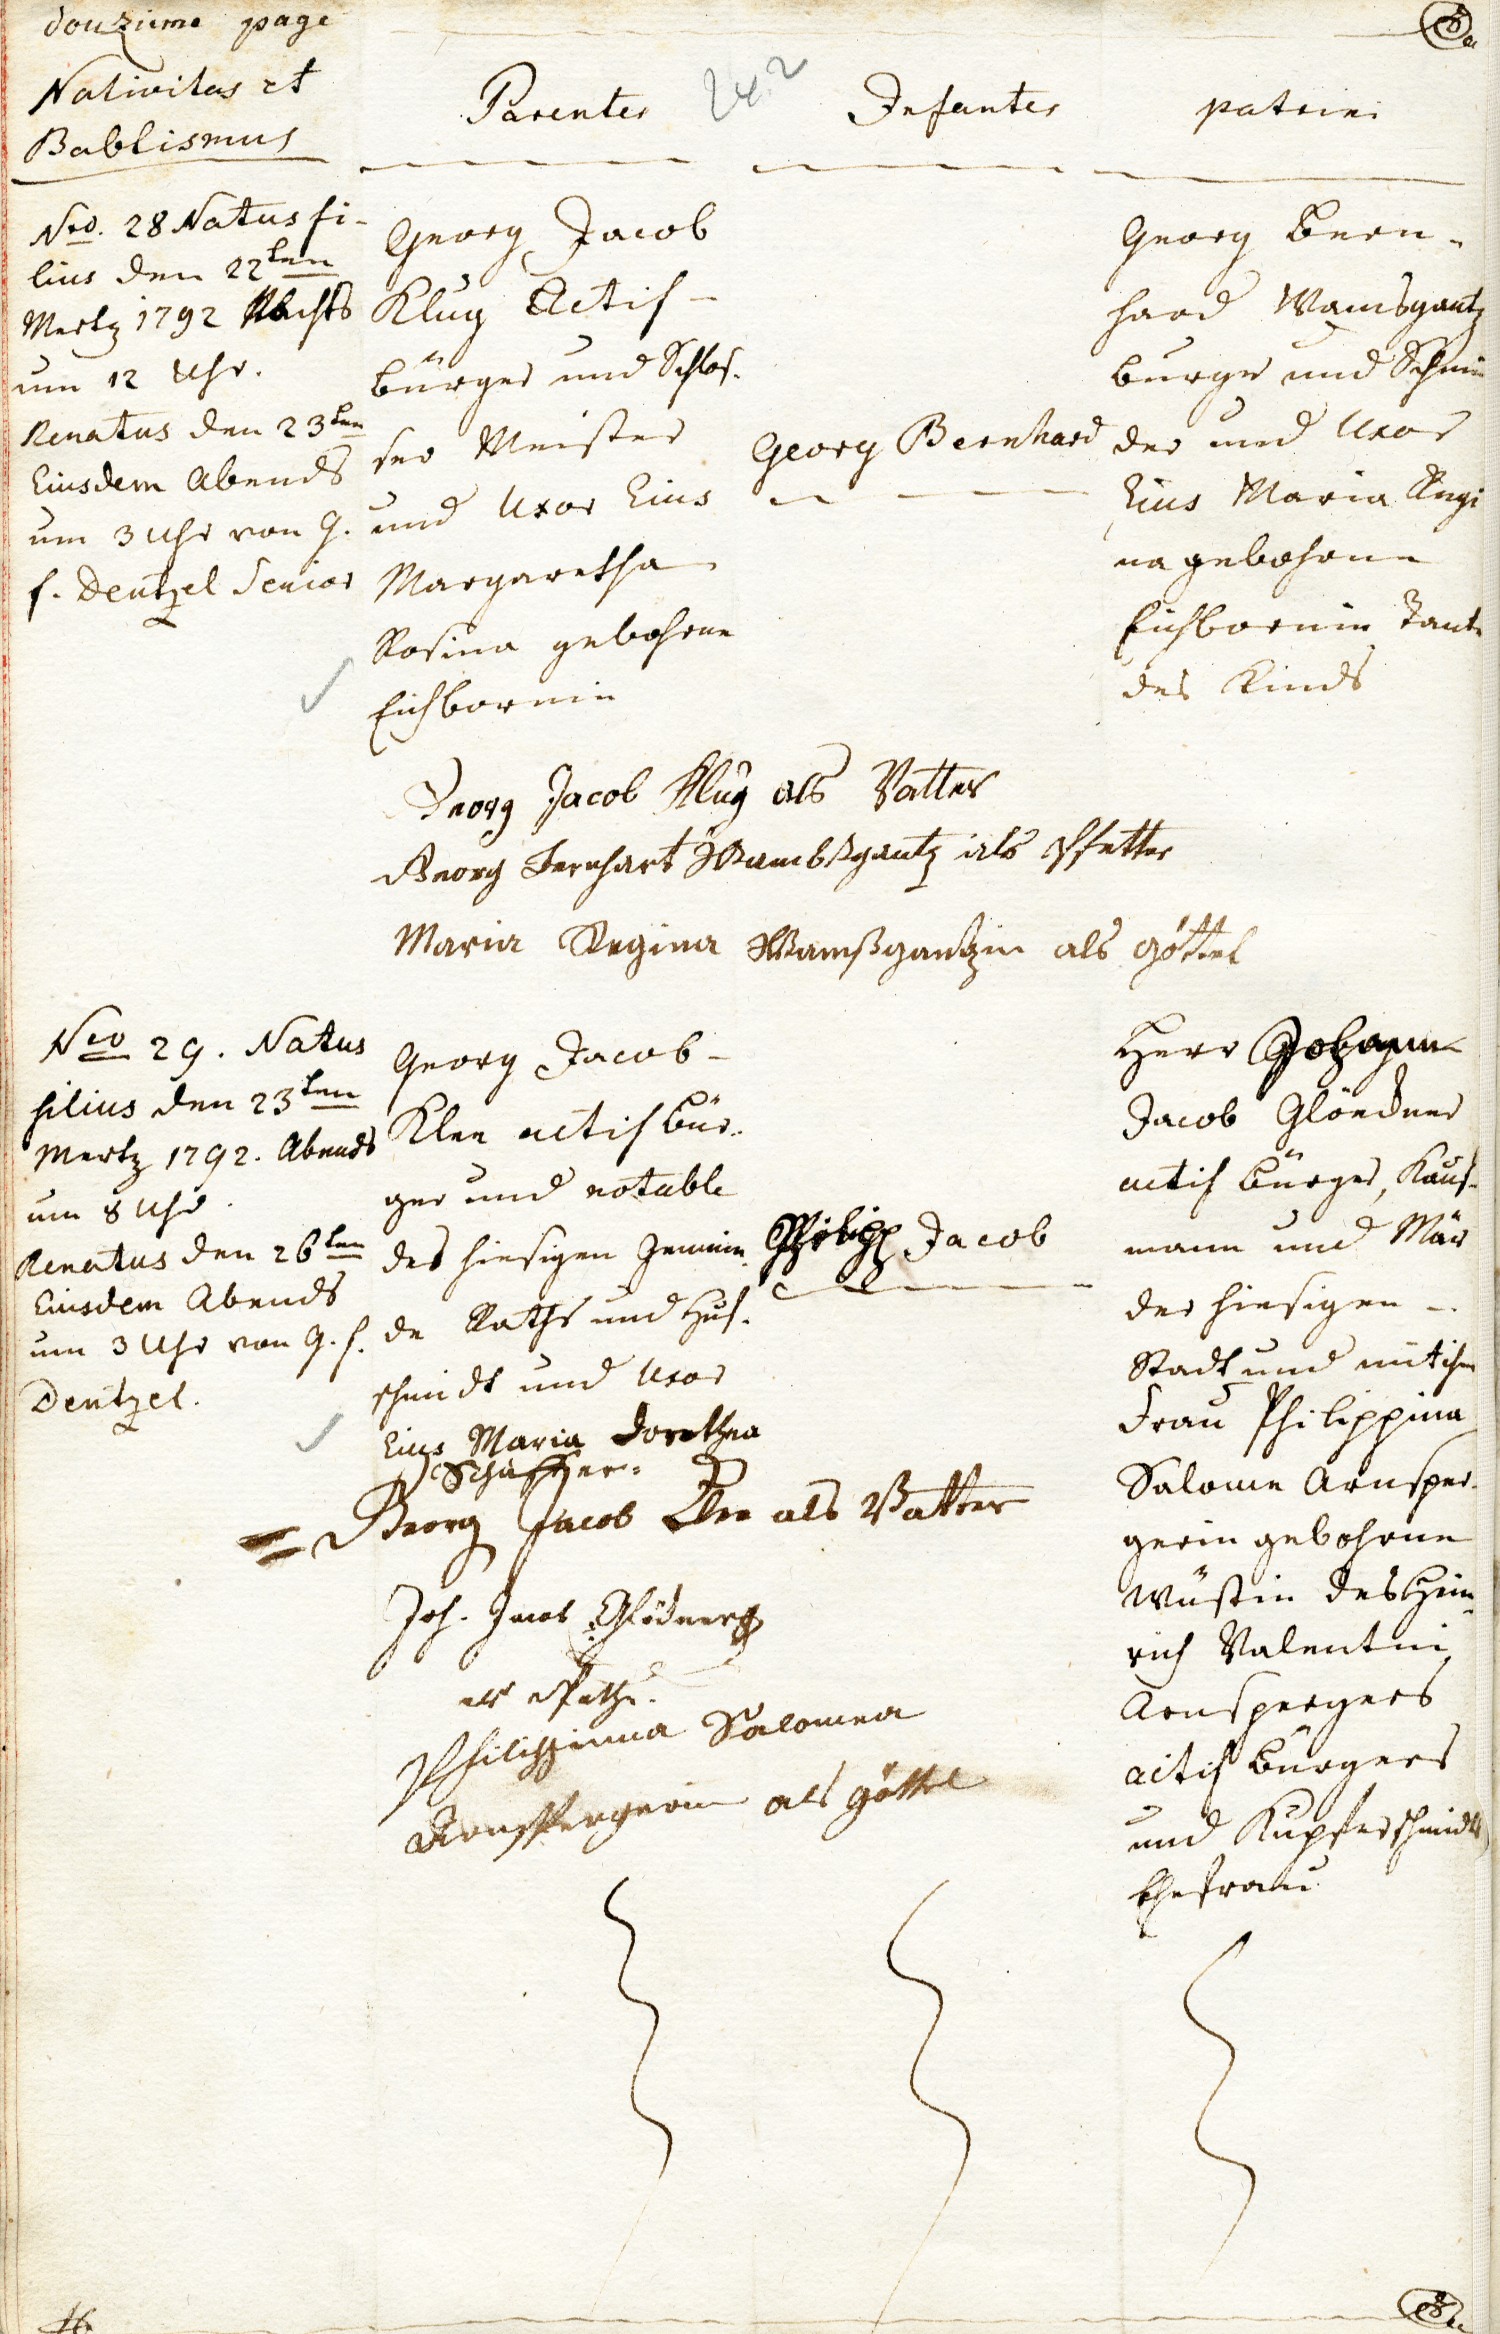 douzieme page
Nativitas et
Babtismus
Parentes
242
Infantes
patrini
Nro. 28 Natus fi-
lius den 22ten
Mertz 1792 Nachts
um 12 Uhr.
Renatus den 23ten
Eiusdem Abends
um 3 Uhr von G.
f. Dentzel Senior
Georg Jacob
Klug Actif-
bürger und Schlos-
ser Meister
und Uxor Eius
Margaretha
Rosina gebohrne
Eichbornin
Georg Bernhard
Georg Bern-
hard Wamsgantz
burger und Schnei
der und Uxor
Eius Maria Regi
na gebohrne
Eichbornin Tante
des Kinds
Georg Jacob Klug als Vatter
Georg Bernhart Wambßgantz als Pfetter
Maria Regina Wamßgantzin als göttel
Nro 29. Natus
filius den 23ten
Mertz 1792. Abends
um 8 Uhr
Renatus den 26ten
Eiusdem Abends
um 3 Uhr von G. f.
Dentzel.
Georg Jacob-
Klee actif bür-
ger und notable
des hiesigen Gemein-
de Raths und Huf-
schmidt und Uxor
Eius Maria Dorothea
Schäffer.
Philipp Jacob
Herr Johann
Jacob Glöckner
actif bürger, Kauf-
mann und Mär
der hiesigen -
Stadt und mit ihm
Frau Philippina
Salome Arnsper-
gerin gebohrne
Wüstin des Hein-
rich Valentin
Arnspergers
actif bürgers
und Kupferschmidts
Ehefrau
Georg Jacob Klee als Vatter
Joh. Jacob Glöckner
als Pathe.
Philippinna Salomea
Arnspergerin als göttel
16